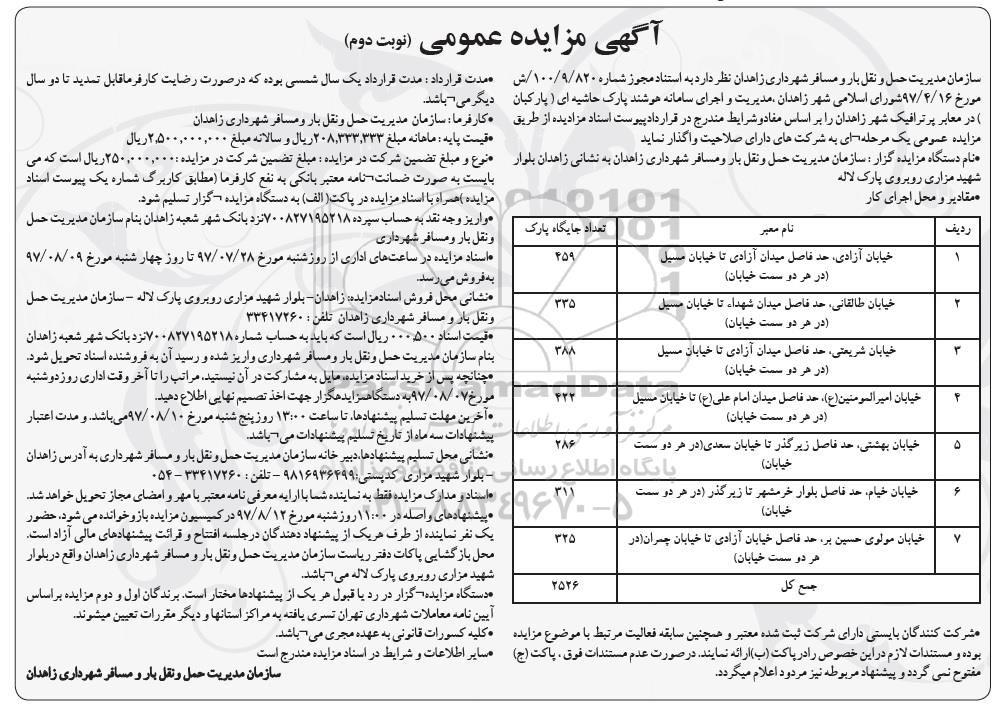 آگهی مزایده عمومی (نوبت دوم)
سازمان مدیریت حمل و نقل بار و مسافر شهرداری زاهدان نظر دارد به استناد مجوز شماره ۱۰۰/۹/۸۲۰/ش
مورخ ۹۷/۴/۱۶شورای اسلامی شهر زاهدان ،مدیریت و اجرای سامانه هوشند پارک حاشیه ای ( پارکبان
) در معابر پرترافیک شهر زاهدان را بر اساس مفادوشرایط مندرج در قراردادپیوست اسناد مزادیده از طریق
مزایده عمومی یک مرحله¬ای به شرکت های دارای صلاحیت واگذار نماید
•نام دستگاه مزایده گزار : سازمان مدیریت حمل و نقل بار ومسافر شهرداری زاهدان به نشانی زاهدان بلوار
شهید مزاری روبروی پارک لاله
•مقادیر و محل اجرای کار
ردیف نام معبر تعداد جایگاه پارک
۱ خیابان آزادی، حد فاصل میدان آزادی تا خیابان مسیل ۴۵۹
(در هر دو سمت خیابان)
۲ خیابان طالقانی، حد فاصل میدان شهداء تا خیابان مسیل ۳۳۵
(در هر دو سمت خیابان)
۳ خیابان شریعتی، حد فاصل میدان آزادی تا خیابان مسیل ۳۸۸
(در هر دو سمت خیابان)
۴ خیابان امیرالمومنین(ع)، حد فاصل میدان امام علی(ع) تا خیابان مسیل ۴۲۲
(در هر دو سمت خیابان)
۵ خیابان بهشتی، حد فاصل زیرگذر تا خیابان سعدی(در هر دو سمت ۲۸۶
خیابان)
۶ خیابان خیام، حد فاصل بلوار خرمشهر تا زیرگذر (در هر دو سمت ۳۱۱
خیابان)
۷ خیابان مولوی حسین بر، حد فاصل خیابان آزادی تا خیابان چمران(در ۳۲۵
هر دو سمت خیابان)
جمع کل ۲۵۲۶
•شرکت کنندگان بایستی دارای شرکت ثبت شده معتبر و همچنین سابقه فعالیت مرتبط با موضوع مزایده
بوده و مستندات لازم دراین خصوص رادرپاکت (ب)ارائه نمایند. درصورت عدم مستندات فوق ، پاکت (ج)
مفتوح نمی گردد و پیشنهاد مربوطه نیز مردود اعلام میگردد.
•مدت قرارداد : مدت قرارداد یک سال شمسی بوده که درصورت رضایت کارفرماقابل تمدید تا دو سال
دیگرمی¬باشد.
•کارفرما : سازمان مدیریت حمل ونقل بار ومسافر شهرداری زاهدان
•قیمت پایه : ماهانه مبلغ ۲۰۸,۳۳۳,۳۳۳ریال و سالانه مبلغ ۲,۵۰۰,۰۰۰,۰۰۰ریال
•نوع و مبلغ تضمین شرکت در مزایده : مبلغ تضمین شرکت در مزایده :۲۵۰,۰۰۰,۰۰۰ریال است که می
بایست به صورت ضمانت¬نامه معتبر بانکی به نفع کارفرما (مطابق کاربرگ شماره یک پیوست اسناد
مزایده )همراه با اسناد مزایده در پاکت( الف) به دستگاه مزایده ¬گزار تسلیم شود.
•واریز وجه نقد به حساب سپرده ۷۰۰۸۲۷۱۹۵۲۱۸نزد بانک شهر شعبه زاهدان بنام سازمان مدیریت حمل
ونقل بار ومسافر شهرداری
•اسناد مزایده در ساعت‌های اداری از روزشنبه مورخ ۹۷/۰۷/۲۸ تا روز چهار شنبه مورخ ۹۷/۰۸/۰۹
به‌فروش می‌رسد.
•نشانی محل فروش اسنادمزایده: زاهدان- بلوار شهید مزاری روبروی پارک لاله – سازمان مدیریت حمل
ونقل بار و مسافر شهرداری زاهدان تلفن : ۳۳۴۱۷۲۶۰
•قیمت اسناد ۵۰۰,۰۰۰ ریال است که باید به حساب شماره ۷۰۰۸۲۷۱۹۵۲۱۸نزد بانک شهر شعبه زاهدان
بنام سازمان مدیریت حمل ونقل بار ومسافر شهرداری واریز شده و رسید آن به فروشنده اسناد تحویل شود.
•چنانچه پس از خرید اسناد مزایده، مایل به مشارکت در آن نیستید، مراتب را تا آخر وقت اداری روزدوشنبه
مورخ۹۷/۰۸/۰۷به دستگاه‌مزایده‌گزار جهت اخذ تصمیم نهایی اطلاع دهید.
•آخرین مهلت تسلیم پیشنهادها، تا ساعت ۱۳:۰۰ روزپنج شنبه مورخ ۹۷/۰۸/۱۰می‌باشد. و مدت اعتبار
پیشنهادات سه ماه از تاریخ تسلیم پیشنهادات می¬باشد.
•نشانی محل تسلیم پیشنهادها،دبیر خانه سازمان مدیریت حمل ونقل بار و مسافر شهرداری به آدرس زاهدان
– بلوار شهید مزاری کدپستی:۹۸۱۶۹۳۶۴۹۹ – تلفن : ۳۳۴۱۷۲۶۰ – ۰۵۴
•اسناد و مدارک مزایده فقط به نماینده شما با ارایه معرفی نامه معتبر با مهر و امضای مجاز تحویل خواهد شد.
•پیشنهادهای واصله در ۱۱:۰۰روزشنبه مورخ ۹۷/۸/۱۲ درکمیسیون مزایده بازوخوانده می شود، حضور
یک نفر نماینده از طرف هریک از پیشنهاد دهندگان درجلسه افتتاح و قرائت پیشنهادهای مالی آزاد است.
محل بازگشایی پاکات دفتر ریاست سازمان مدیریت حمل ونقل بار و مسافر شهرداری زاهدان واقع دربلوار
شهید مزاری روبروی پارک لاله می ¬باشد.
•دستگاه مزایده¬گزار در رد یا قبول هر یک از پیشنهادها مختار است. برندگان اول و دوم مزایده براساس
آیین نامه معاملات شهرداری تهران تسری یافته به مراکز استانها و دیگر مقررات تعیین میشوند.
•کلیه کسورات قانونی به عهده مجری می¬باشد.
•سایر اطلاعات و شرایط در اسناد مزایده مندرج است
سازمان مدیریت حمل ونقل بار و مسافر شهرداری زاهدان
ParsNamadData
پایگاه اطلاع رسانی مناقصه و مزایده
۰۲۱-۸۸۳۴۹۶۷۰-۵